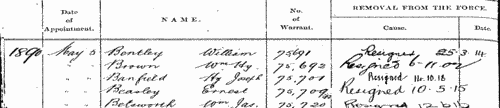 Date of Appointment. NAME. No. of Warrant. REMOVAL FROM THE FORCE.
Cause. Date.
1890 May 5 Bentley William 75691 Resigned 25.3.14
" " Brown Wm Hy 75,692 Resigned 6.11.02
" " Banfield Hy Joseph 75,701 Resigned 14.10.18
" " Beasley Ernest 75,709 Resigned 10.5.15
" " Wm Jas. 75,720